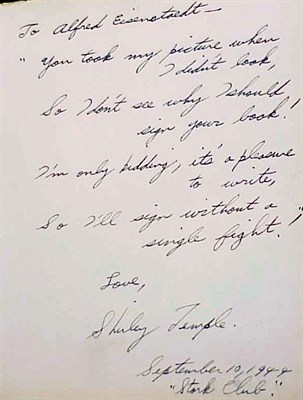 To Alfred Eisenstaedt—
"You took my picture when
I didn't look,
So I don't see why I should
sign your book!
I'm only kidding, it's a pleasure
to write,
So I'll sign without a
single fight!"
Love,
Shirley Temple.
September 10, 1944
"Stork Club"